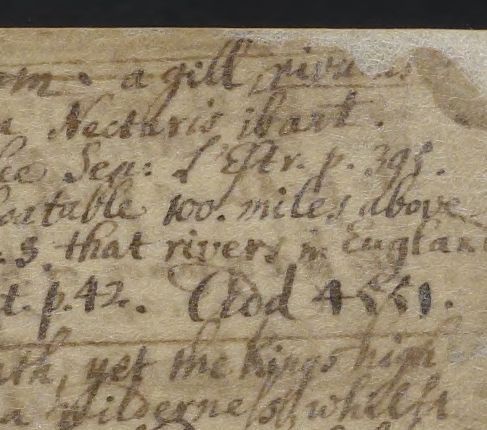 om. a gill, rivu us
Nectaris ibant.
See Sea: L'Estr. p. 395.
oatable 100. miles above
. 3. that rivers in Englan
t. p. 42. Clod 4551.
ath, yet the Kings high
a wilderness, whilst